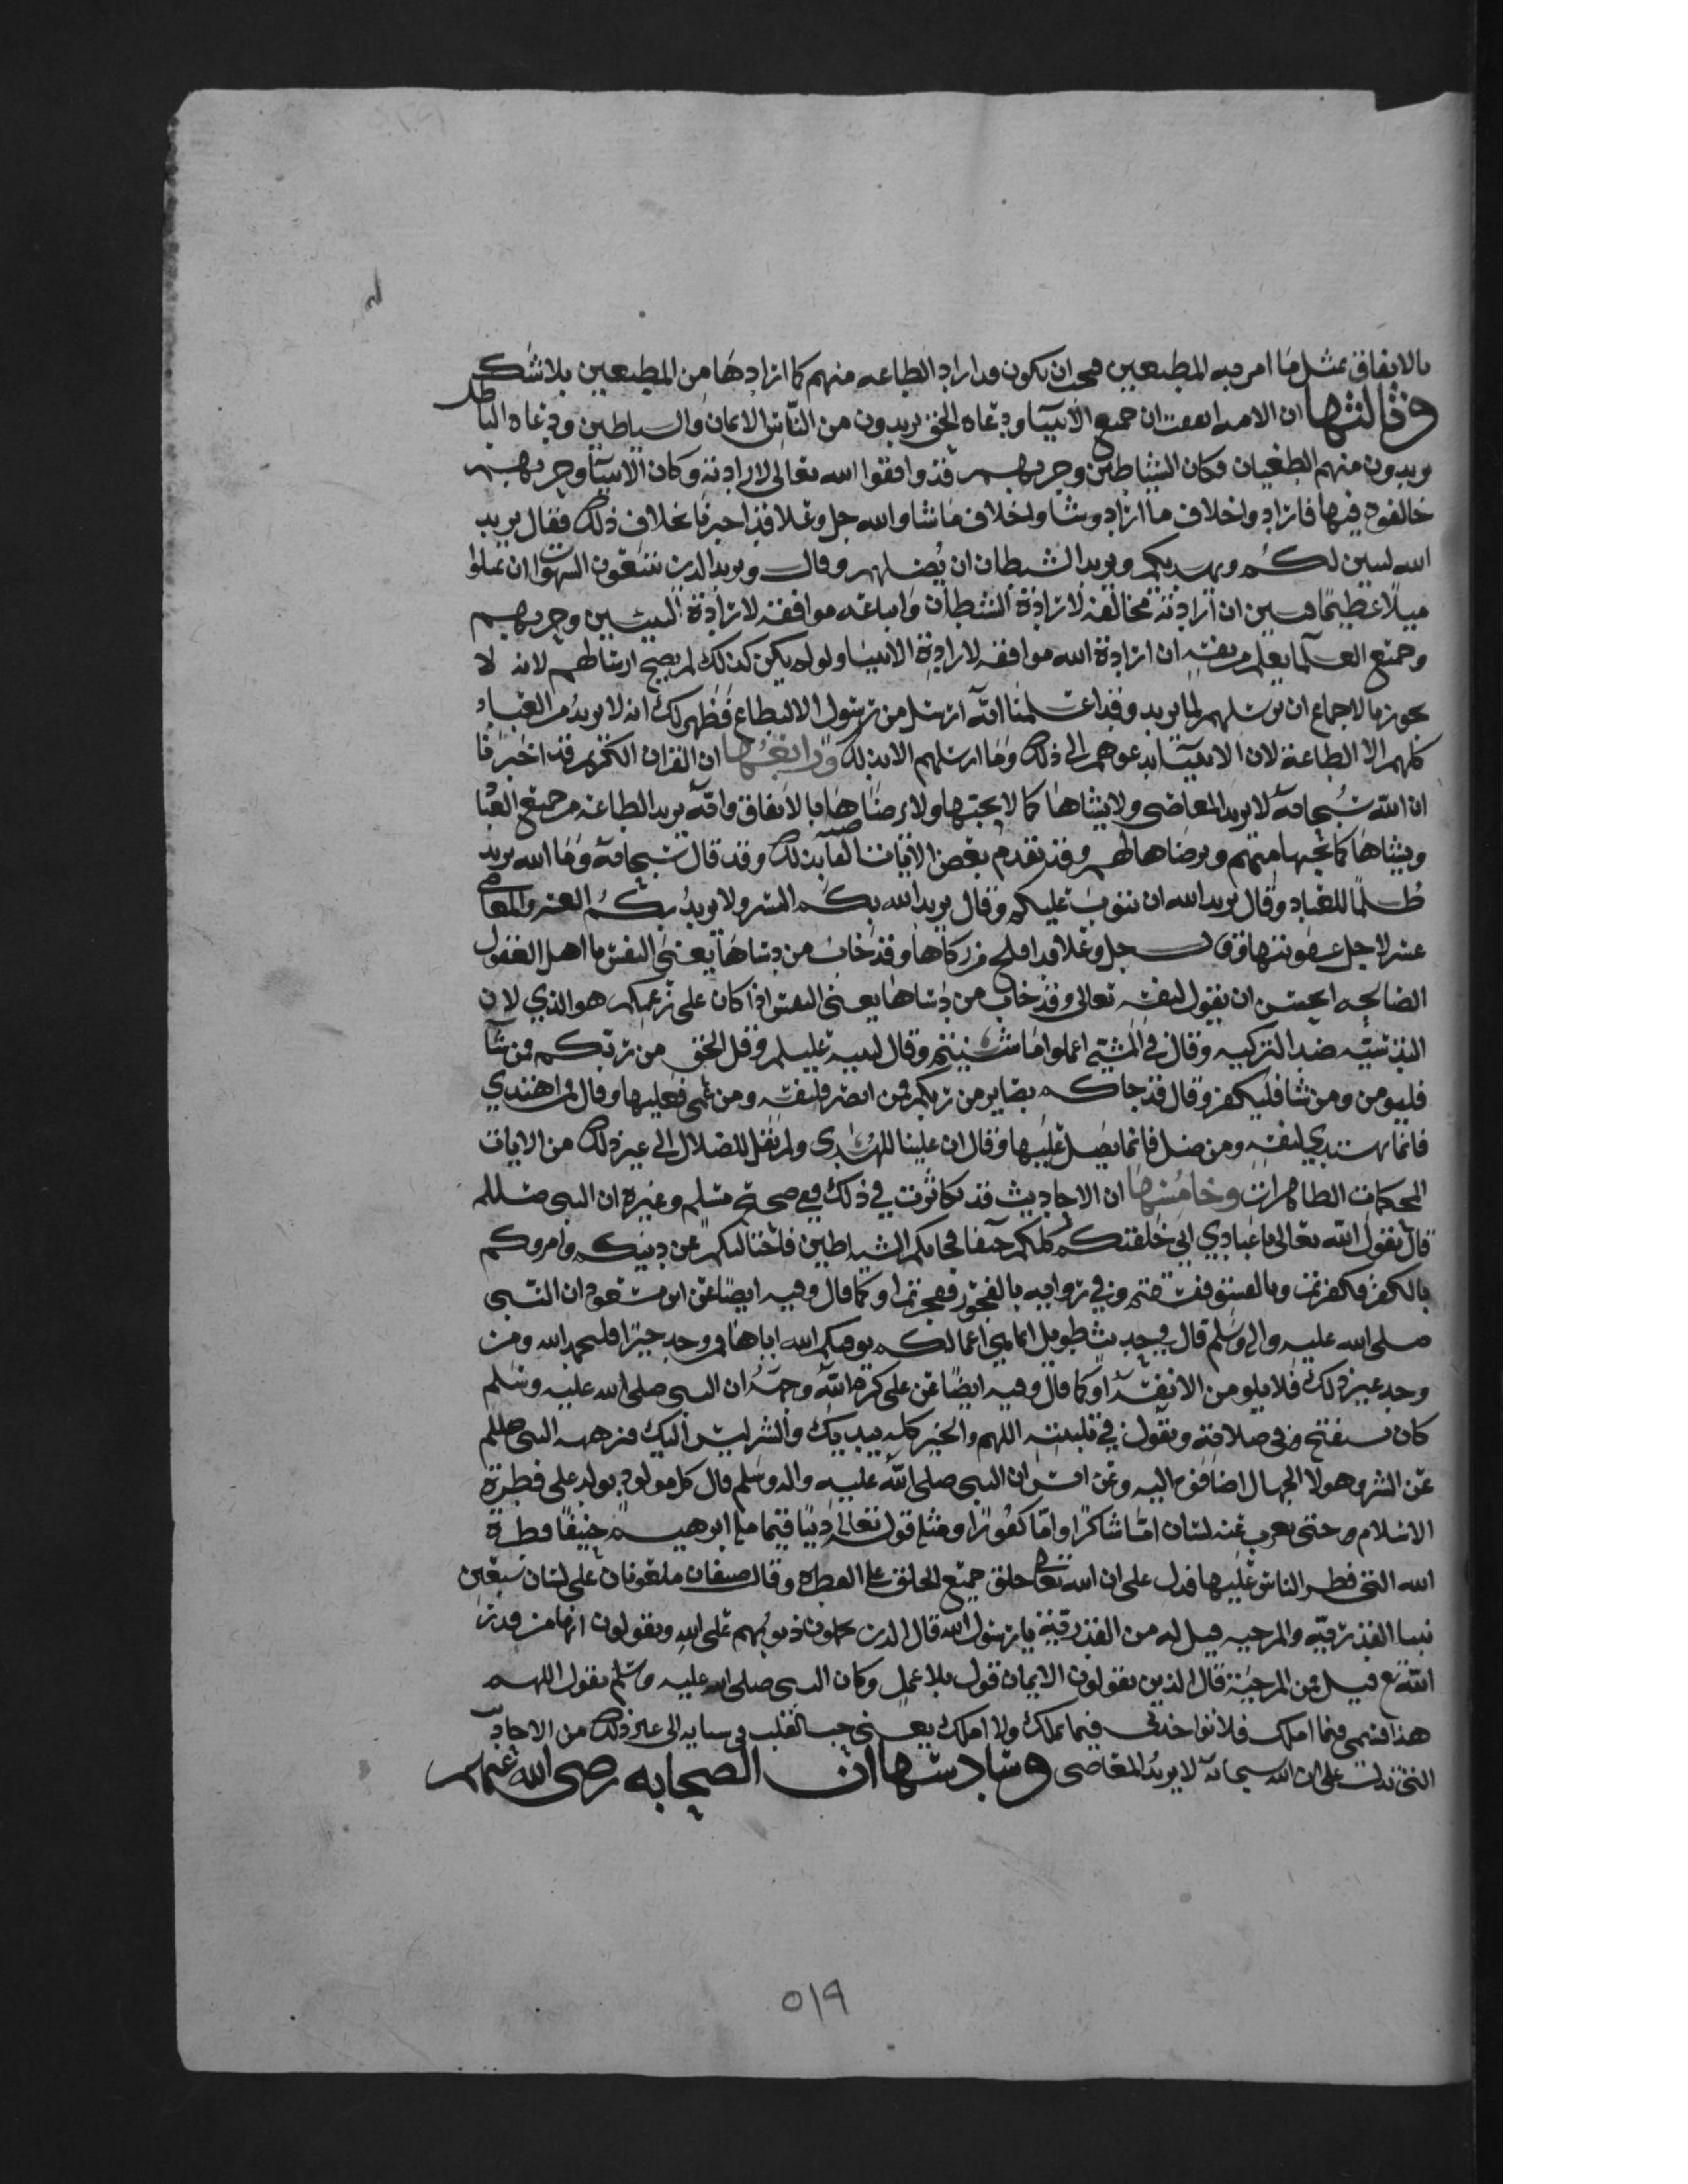 بالاتفاق بمثل ما امر به المطيعين فيجب ان يكون قد اراد الطاعه منهم كما ارادها من المطيعين بلا شك
وثالثها ان الامه اتفقت ان جميع الانبيا ودعاه الحق يريدون من الناس الايمان والشياطين ودعاه الباطل
يريدون منهم الطغيان فكان الشياطين وحزبهم قد وافقوا الله تعالى لارادته وكان الانبيا وحزبهم
خالفوه فيها فاراد واخلاف ما اراد وشا واخلاف ما شا والله جل وعلا قد اخبرنا بخلاف ذلك فقال يريد
الله ليبين لكم ويهديكم ويريد الشيطان ان يضلهم وقال ويريد الذين يتبعون الشهوات ان تميلوا
ميلا عظيما فبين ان ارادته مخالفة لارادة الشيطان واتباعه موافقة لارادة النبيين وحزبهم
وجميع العلما يعلم من نفسه ان ارادة الله موافقه لارادة الانبيا ولو لم يكن كذلك لم يصح ارسالهم لانه لا
يجوز بالاجماع ان يرسلهم لما يريد وقد اعلمنا انه ارسل من رسول الا ليطاع فظهر لك انه لا يريد من العباد
كلهم الا الطاعة لان الانبيا يدعوهم الى ذلك وما ارسلهم الا بذلك ورابعها ان القران الكريم قد اخبرنا
ان الله سبحانه لا يريد المعاصي ولا يشاها كما لا يحبها ولا يرضاها بالاتفاق وانه يريد الطاعة من جميع العباد
ويشاها كما يحبها منهم ويرضاها لهم وقد تقدم بعض الايات القاضيه بذلك وقد قال سبحانه وما الله يريد
ظلما للعباد وقال يريد الله ان يتوب عليكم وقال يريد الله بكم اليسر ولا يريد بكم العسر والمعاصي
عسر لاجل عقوبتها وقال جل وعلا قد افلح من زكاها وقد خاب من دساها يعني النفس يا اهل العقول
الصالحه ايحسن ان يقول لنفسه تعالى وقد خاب من دساها يعني النفس اذا كان على زعمكم هو الذي لان
التدسيه ضد التزكيه وقال في المشيه اعملوا ما شئتم وقال لنبيه عليلم وقل الحق من ربكم فمن شا
فليومن ومن شا فليكفر وقال قد جاكم بصاير من ربكم فمن ابصر فلنفسه ومن عمى فعليها وقال من اهتدي
فانما يهتدي لنفسه ومن ضل فانما يضل عليها وقال ان علينا للهدى ولم يقل للضلال الى غير ذلك من الايات
المحكمات الظاهرات وخامسها ان الاحاديث قد تكاثرت في ذلك ففي صحيح مسلم وغيره ان النبي صلله
قال يقول الله تعالى يا عبادي اني خلقتكم كلكم حنفا فجاتكم الشياطين فاختالتكم عن دينكم وامروكم
بالكفر فكفرتم وبالفسق ففسقتم وفي روايه بالفجور ففجرتم او كما قال وفيه ايضا عن ابن مسعود ان النبي
صلى الله عليه واله وسلم قال في حديث طويل انما هي اعمالكم يوفيكم الله اياها فمن وجد خيرا فليحمد الله ومن
وجد غير ذلك فلا يلومن الا نفسه او كما قال وفيه ايضا عن علي كرم الله وجهه ان النبي صلى الله عليه وسلم
كان يستفتح في صلاته ويقول في تلبيته اللهم والخير كله بيديك والشر ليس اليك فنزهه النبي صللم
عن الشر وهولا الجهال اضافوه اليه وعن انس ان النبي صلى الله عليه واله وسلم قال كل مولود يولد على فطرة
الاسلام حتى يعرب عنه لسان اما شاكرا واما كفورا ومثله قوله تعالى دينا قيما ملة ابرهيم حنيفا فطرة
الله التي فطر الناس عليها فدل على ان الله تعالى خلق جميع الخلق على الفطره وقال صنفان ملعونان على لسان سبعين
نبيا القدرية والمرجيه قيل له من القدرية يا رسول الله قال الذين يحملون ذنوبهم على الله ويقولون انها من قدر
الله قيل فمن المرجية قال الذين يقولون الايمان قول بلا عمل وكان النبي صلى الله عليه وسلم يقول اللهم
هذا قسمي فيما املك فلا تواخذني فيما تملك ولا املك يعني حب القلب في نسايه الى غير ذلك من الاحاديث
التي تدل على ان الله سبحانه لا يريد المعاصي وسادسها ان الصحابه رضي الله عنهم
٥١٩